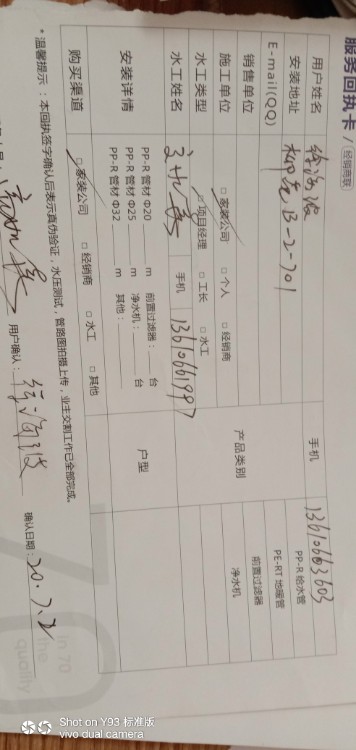 服务回执卡/经销商联
用户姓名 手机 13610663603
安装地址 B-2-701 PP-R 给水管
E-mail(QQ) PE-RT 地暖管
销售单位 产品类别 前置过滤器
施工单位 □家装公司 □个人 □经销商 净水机
水工类型 □项目经理 □工长 □水工
水工姓名 手机 13610661997
安装详情 PP-R 管材 Φ20 m 前置过滤器: 台 户型
PP-R 管材 Φ25 m 净水机: 台
PP-R 管材 Φ32 m 其他:
购买渠道 □家装公司 □经销商 □水工 □其他
*温馨提示:本回执签字确认后表示真伪验证,水压测试,管路图拍摄上传,业主交割工作已全部完成。
用户确认: 确认日期: 20.7.2
in 70
the
quality
Shot on Y93 标准版
vivo dual camera